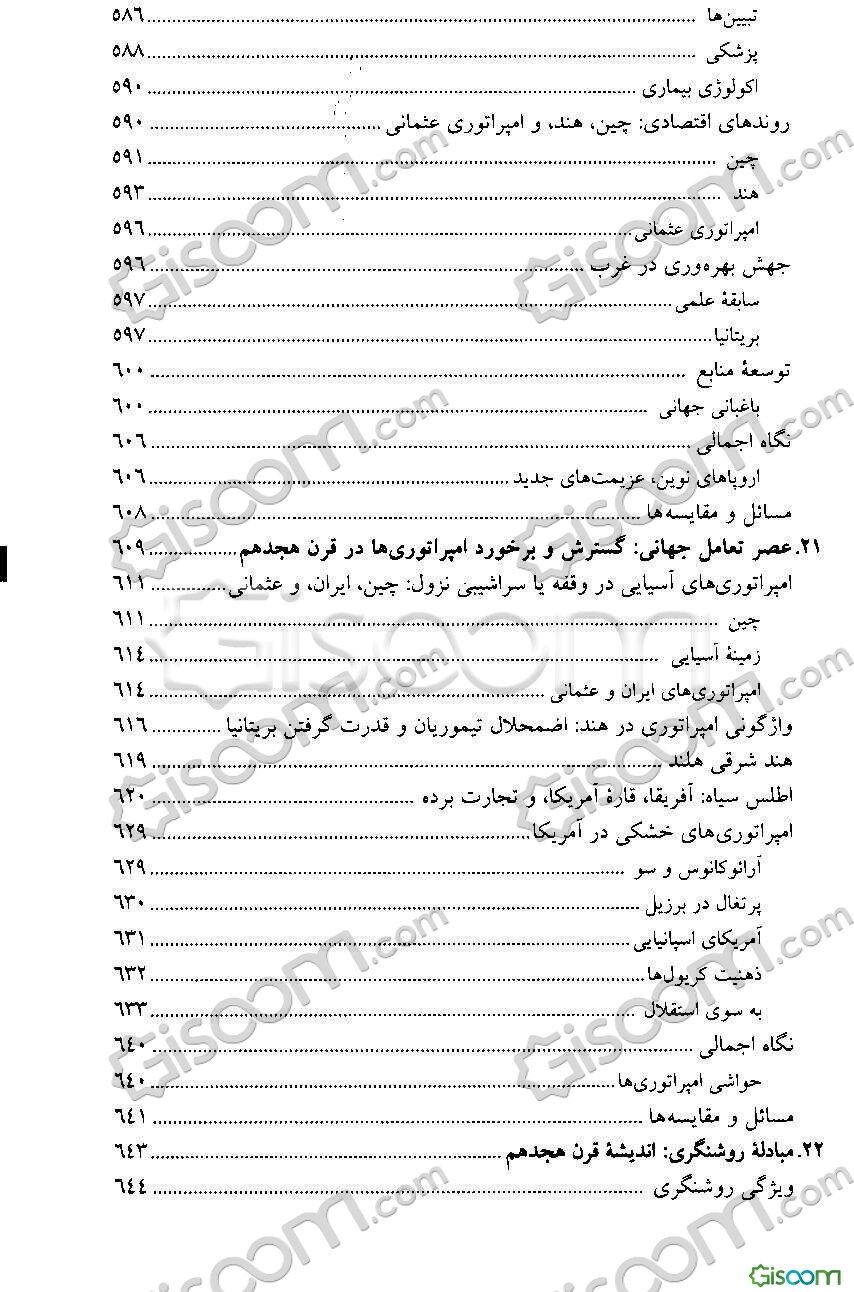 تبیین‌ها ........ ٥٨٦
پزشکی ........ ٥٨٨
اکولوژی بیماری ........ ٥٩٠
روندهای اقتصادی: چین، هند، و امپراتوری عثمانی ........ ٥٩٠
چین ........ ٥٩١
هند ........ ٥٩٣
امپراتوری عثمانی ........ ٥٩٦
جهش بهره‌وری در غرب ........ ٥٩٦
سابقهٔ علمی ........ ٥٩٧
بریتانیا ........ ٥٩٧
توسعهٔ منابع ........ ٦٠٠
باغبانی جهانی ........ ٦٠٠
نگاه اجمالی ........ ٦٠٦
اروپاهای نوین، عزیمت‌های جدید ........ ٦٠٦
مسائل و مقایسه‌ها ........ ٦٠٨
٢١. عصر تعامل جهانی: گسترش و برخورد امپراتوری‌ها در قرن هجدهم ........ ٦٠٩
امپراتوری‌های آسیایی در وقفه یا سراشیبیِ نزول: چین، ایران، و عثمانی ........ ٦١١
چین ........ ٦١١
زمینهٔ آسیایی ........ ٦١٤
امپراتوری‌های ایران و عثمانی ........ ٦١٤
واژگونی امپراتوری در هند: اضمحلال تیموریان و قدرت گرفتن بریتانیا ........ ٦١٦
هند شرقی هلند ........ ٦١٩
اطلس سیاه: آفریقا، قارهٔ آمریکا، و تجارت برده ........ ٦٢٠
امپراتوری‌های خشکی در آمریکا ........ ٦٢٩
آرائوکانوس و سو ........ ٦٢٩
پرتغال در برزیل ........ ٦٣٠
آمریکای اسپانیایی ........ ٦٣١
ذهنیت کریول‌ها ........ ٦٣٢
به سوی استقلال ........ ٦٣٣
نگاه اجمالی ........ ٦٤٠
حواشی امپراتوری‌ها ........ ٦٤٠
مسائل و مقایسه‌ها ........ ٦٤١
٢٢. مبادلهٔ روشنگری: اندیشهٔ قرن هجدهم ........ ٦٤٣
ویژگی روشنگری ........ ٦٤٤
Gisoom.com
Gisoom